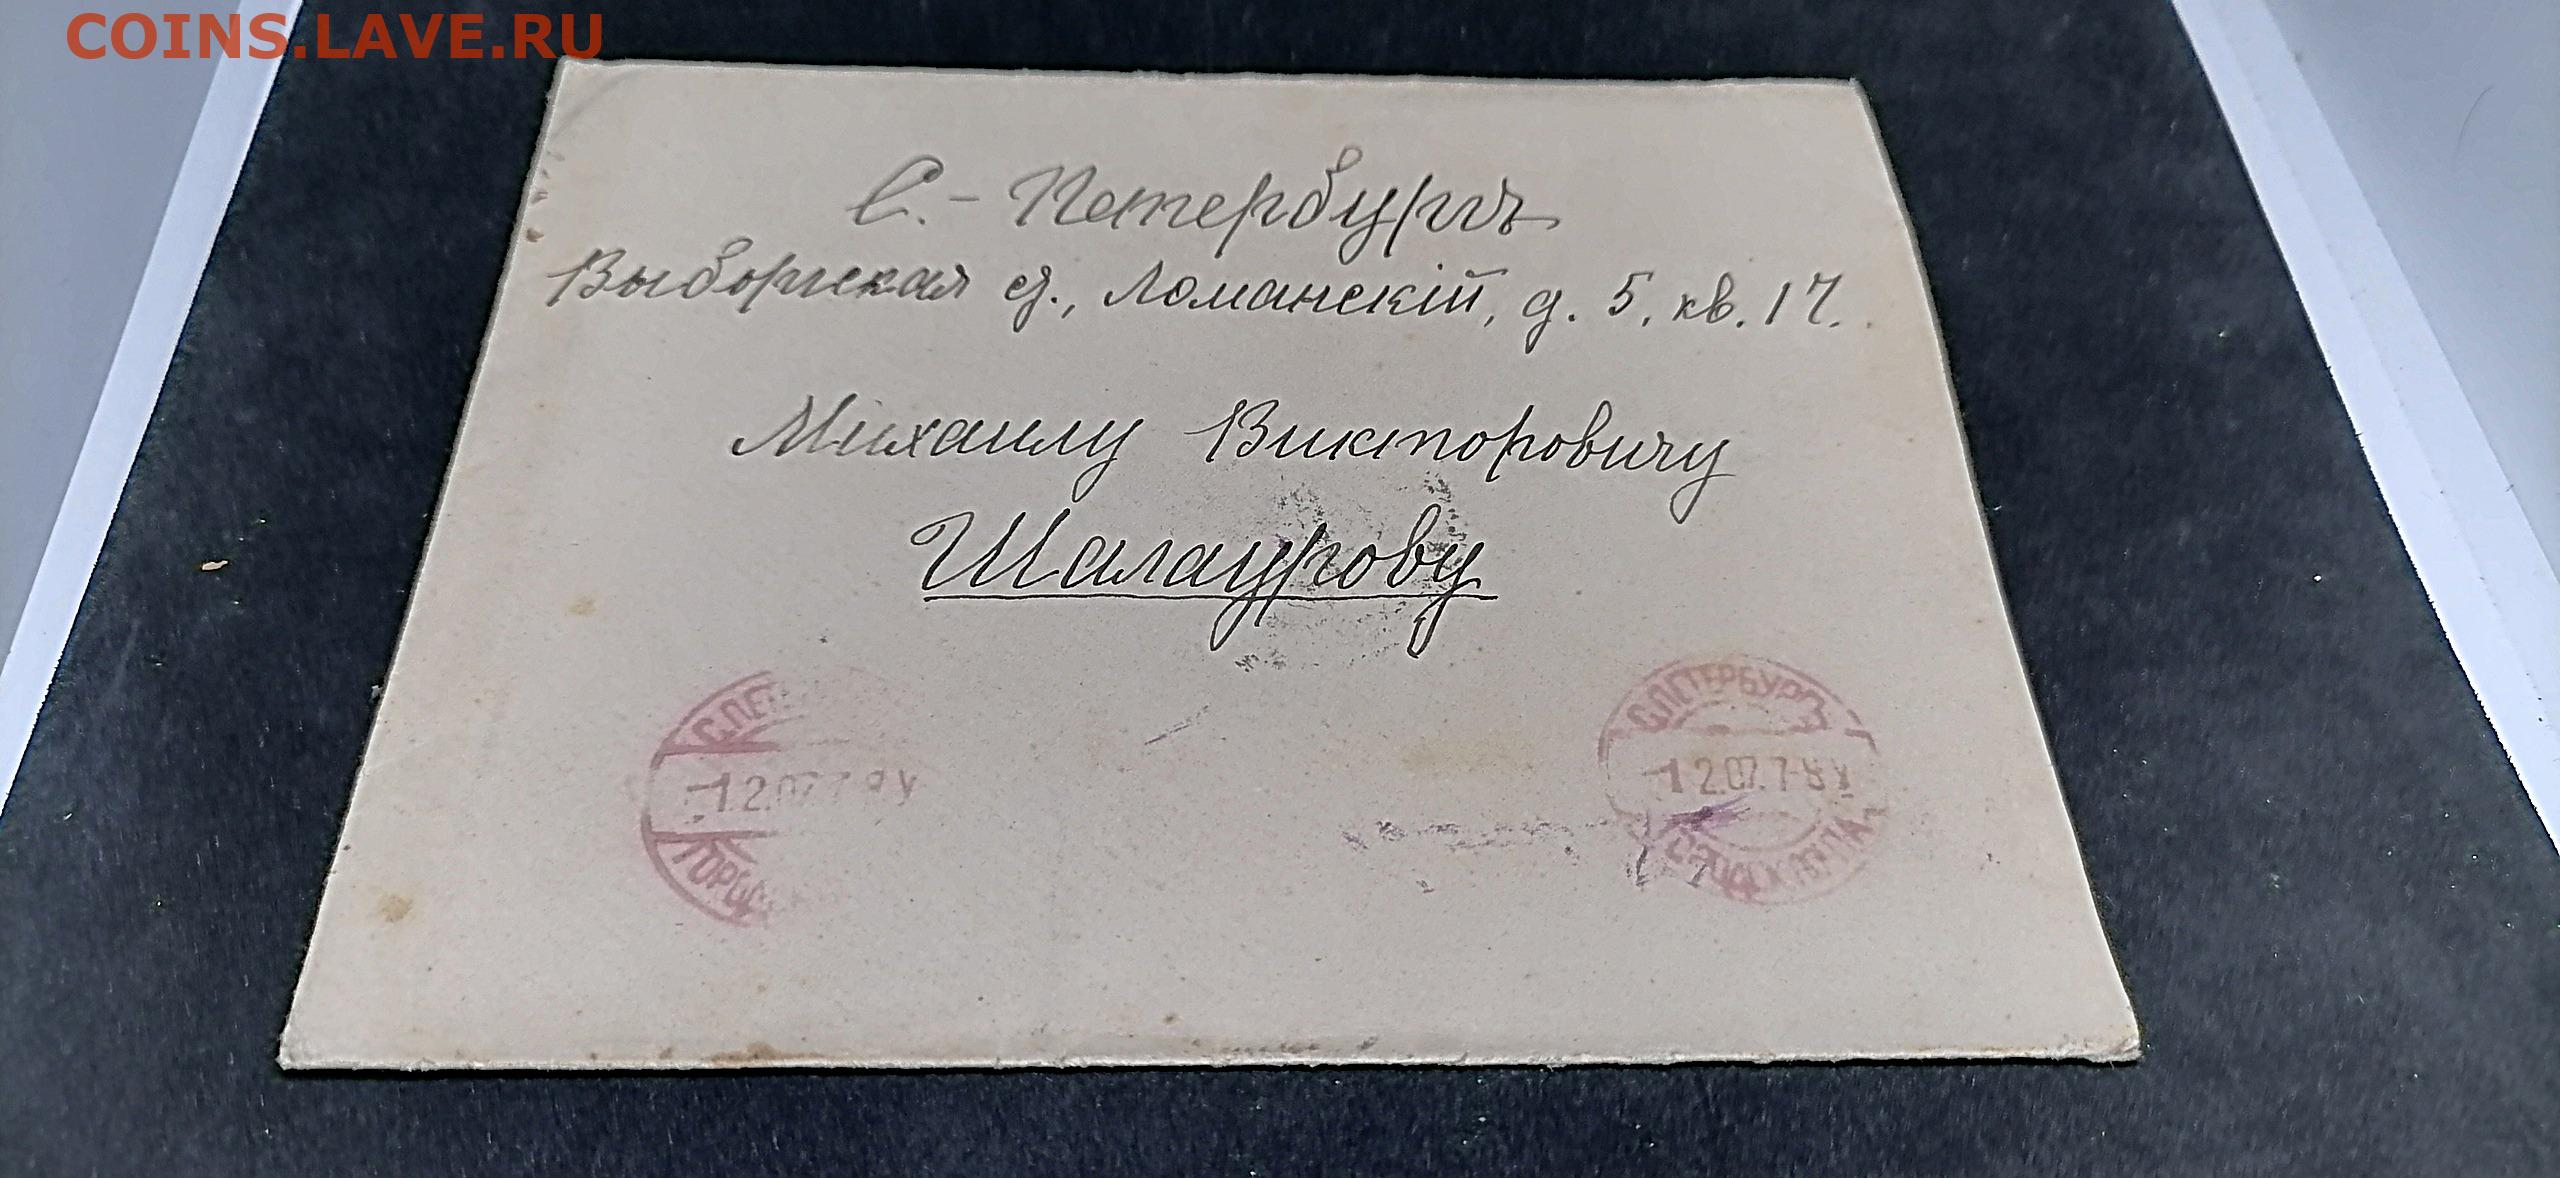 COINS.LAVE.RU
С.-Петербургъ
Выборгская ст., Ломанскій, д. 5, кв. 17.
Михаилу Викторовичу
Шалаурову
С.ПЕ
-1.2.07.7-8 V
ГОРОД
С.ПЕТЕРБУРГЪ
-1.2.07.7-8 V
ГОРОДСК. ПОЧТА